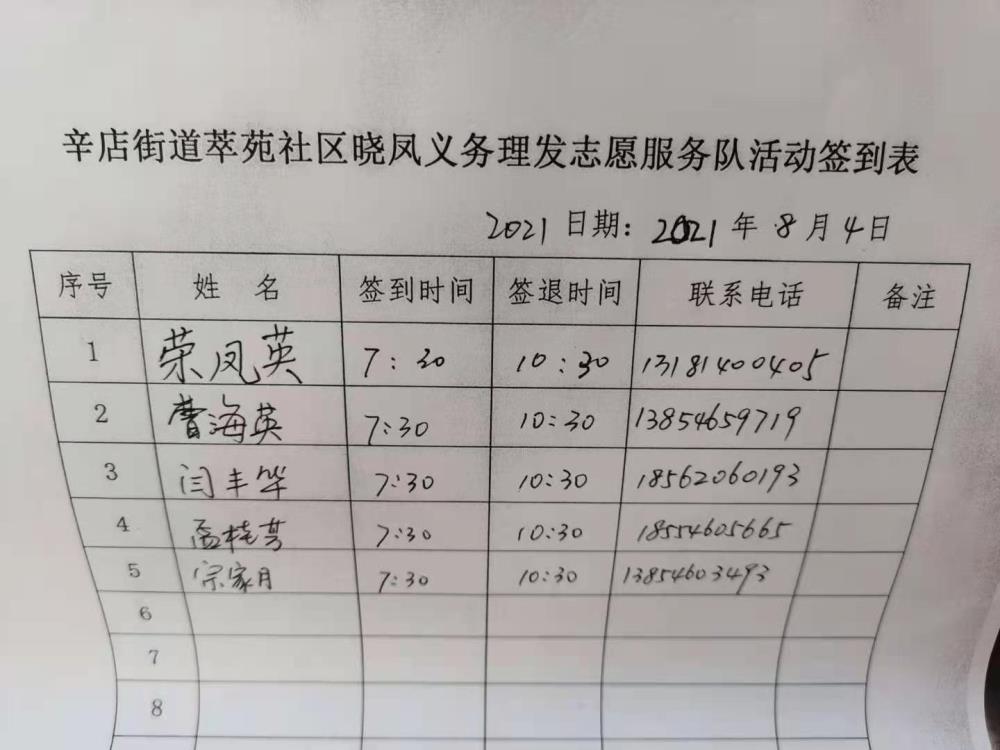 辛店街道萃苑社区晓凤义务理发志愿服务队活动签到表
2021 日期: 2021 年 8 月 4 日
序号 姓 名 签到时间 签退时间 联系电话 备注
1 荣凤英 7:30 10:30 13181400405
2 曹海英 7:30 10:30 13854659719
3 闫丰华 7:30 10:30 18562060193
4 孟桂芳 7:30 10:30 18554605665
5 宗家月 7:30 10:30 13854603493
6
7
8